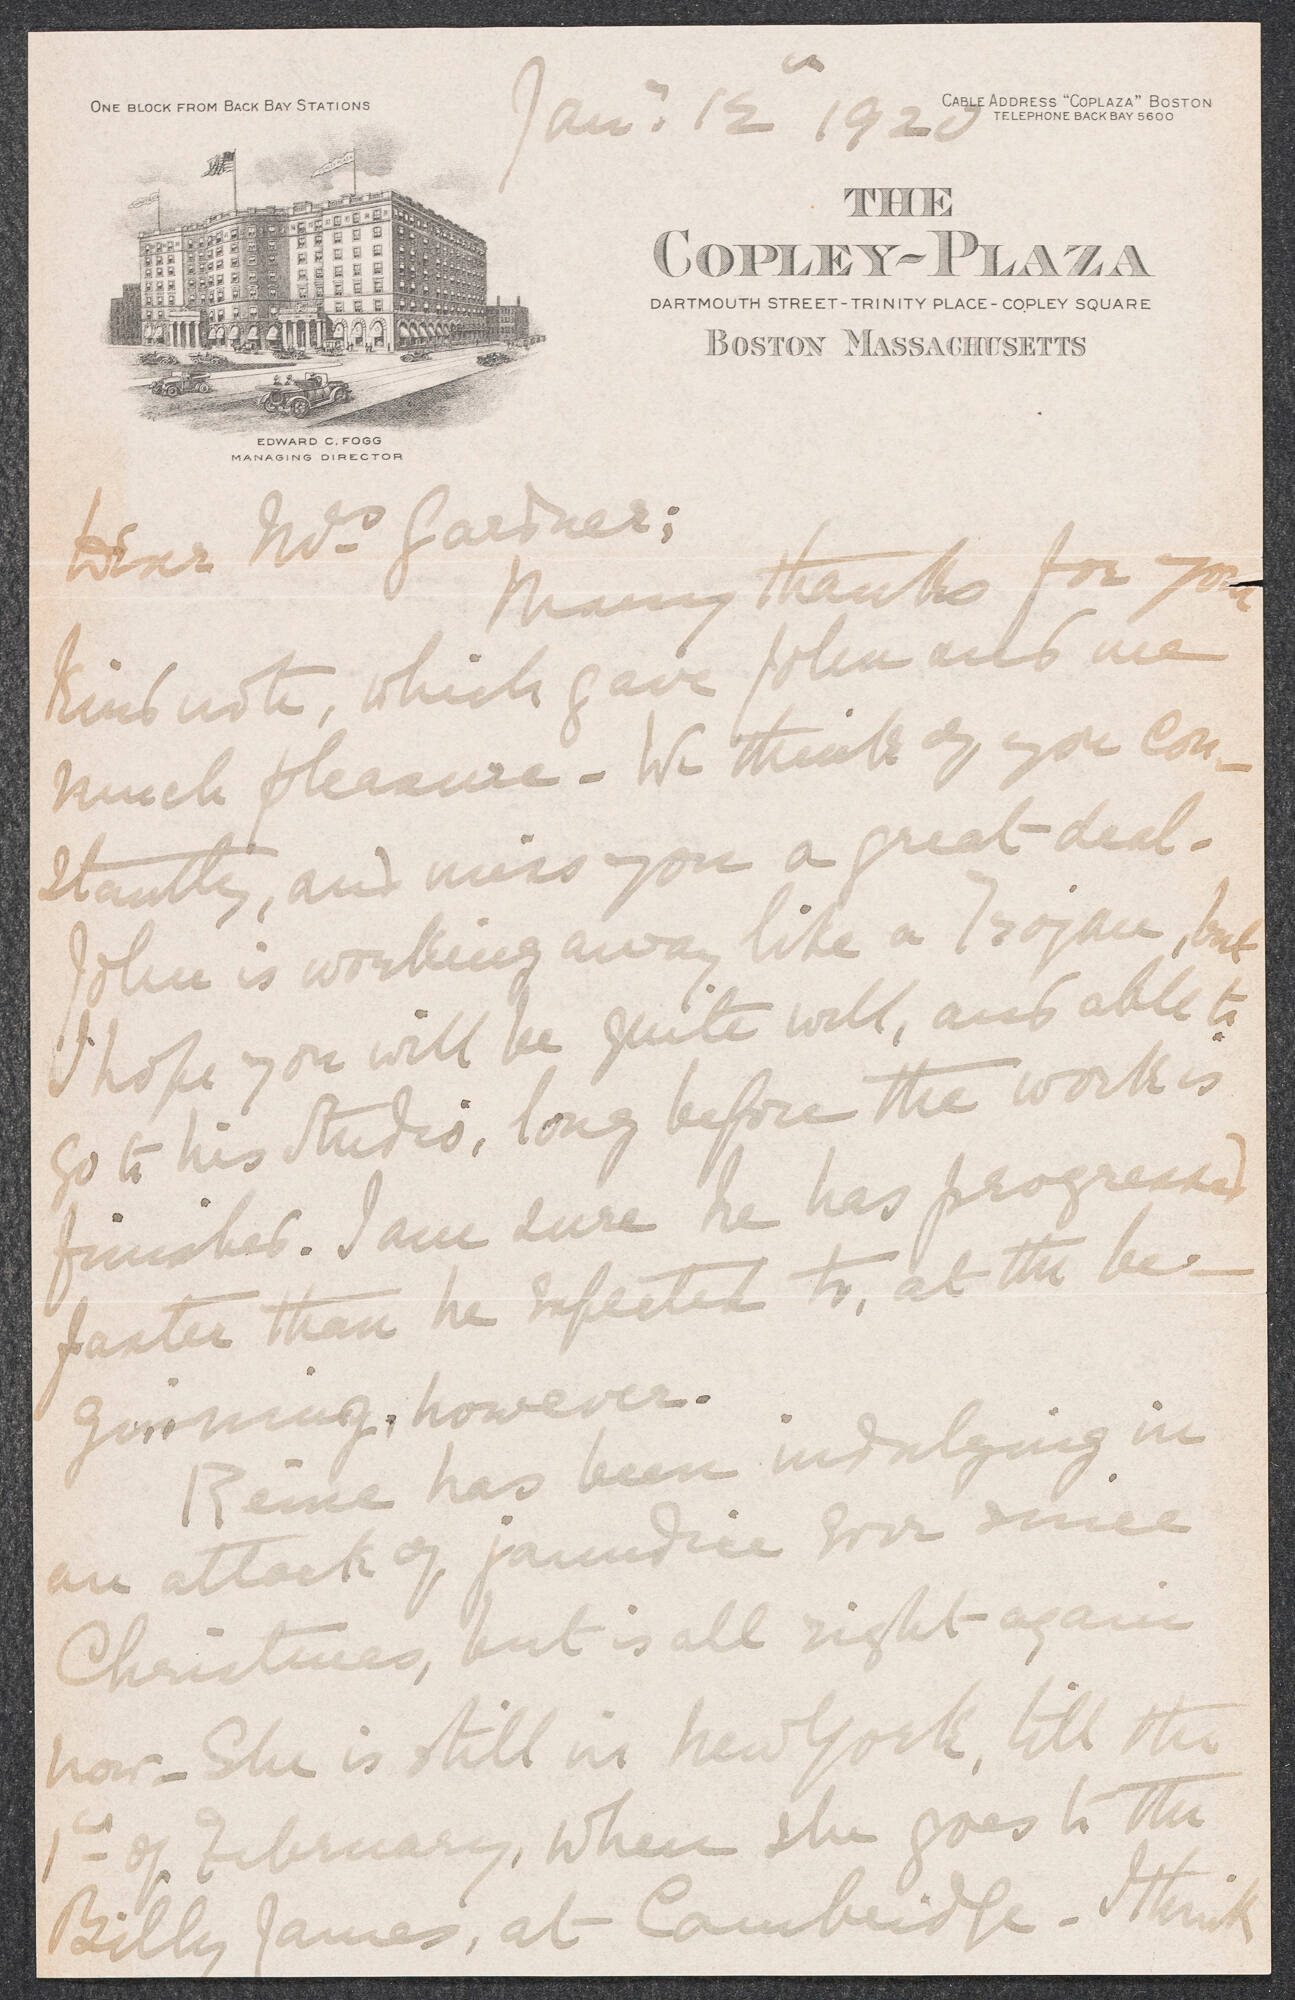 Jany. 12th 1920
ONE BLOCK FROM BACK BAY STATIONS
CABLE ADDRESS "COPLAZA" BOSTON
TELEPHONE BACK BAY 5600
THE
COPLEY-PLAZA
DARTMOUTH STREET-TRINITY PLACE-COPLEY SQUARE
BOSTON MASSACHUSETTS
EDWARD C. FOGG
MANAGING DIRECTOR
Dear Mrs Gardner;
Many thanks for your
kind note, which gave John and me
much pleasure - We think of you con-
stantly, and miss you a great deal.
John is working away like a Trojan, but
I hope you will be quite well, and able to
go to his studio, long before the work is
finished. I am sure he has progressed
faster than he expected to, at the be-
ginning, however.
Reine has been indulging in
an attack of jaundice ever since
Christmas, but is all right again
now - She is still in New York, till the
1st of February, when she goes to the
Billy James, at Cambridge - I think